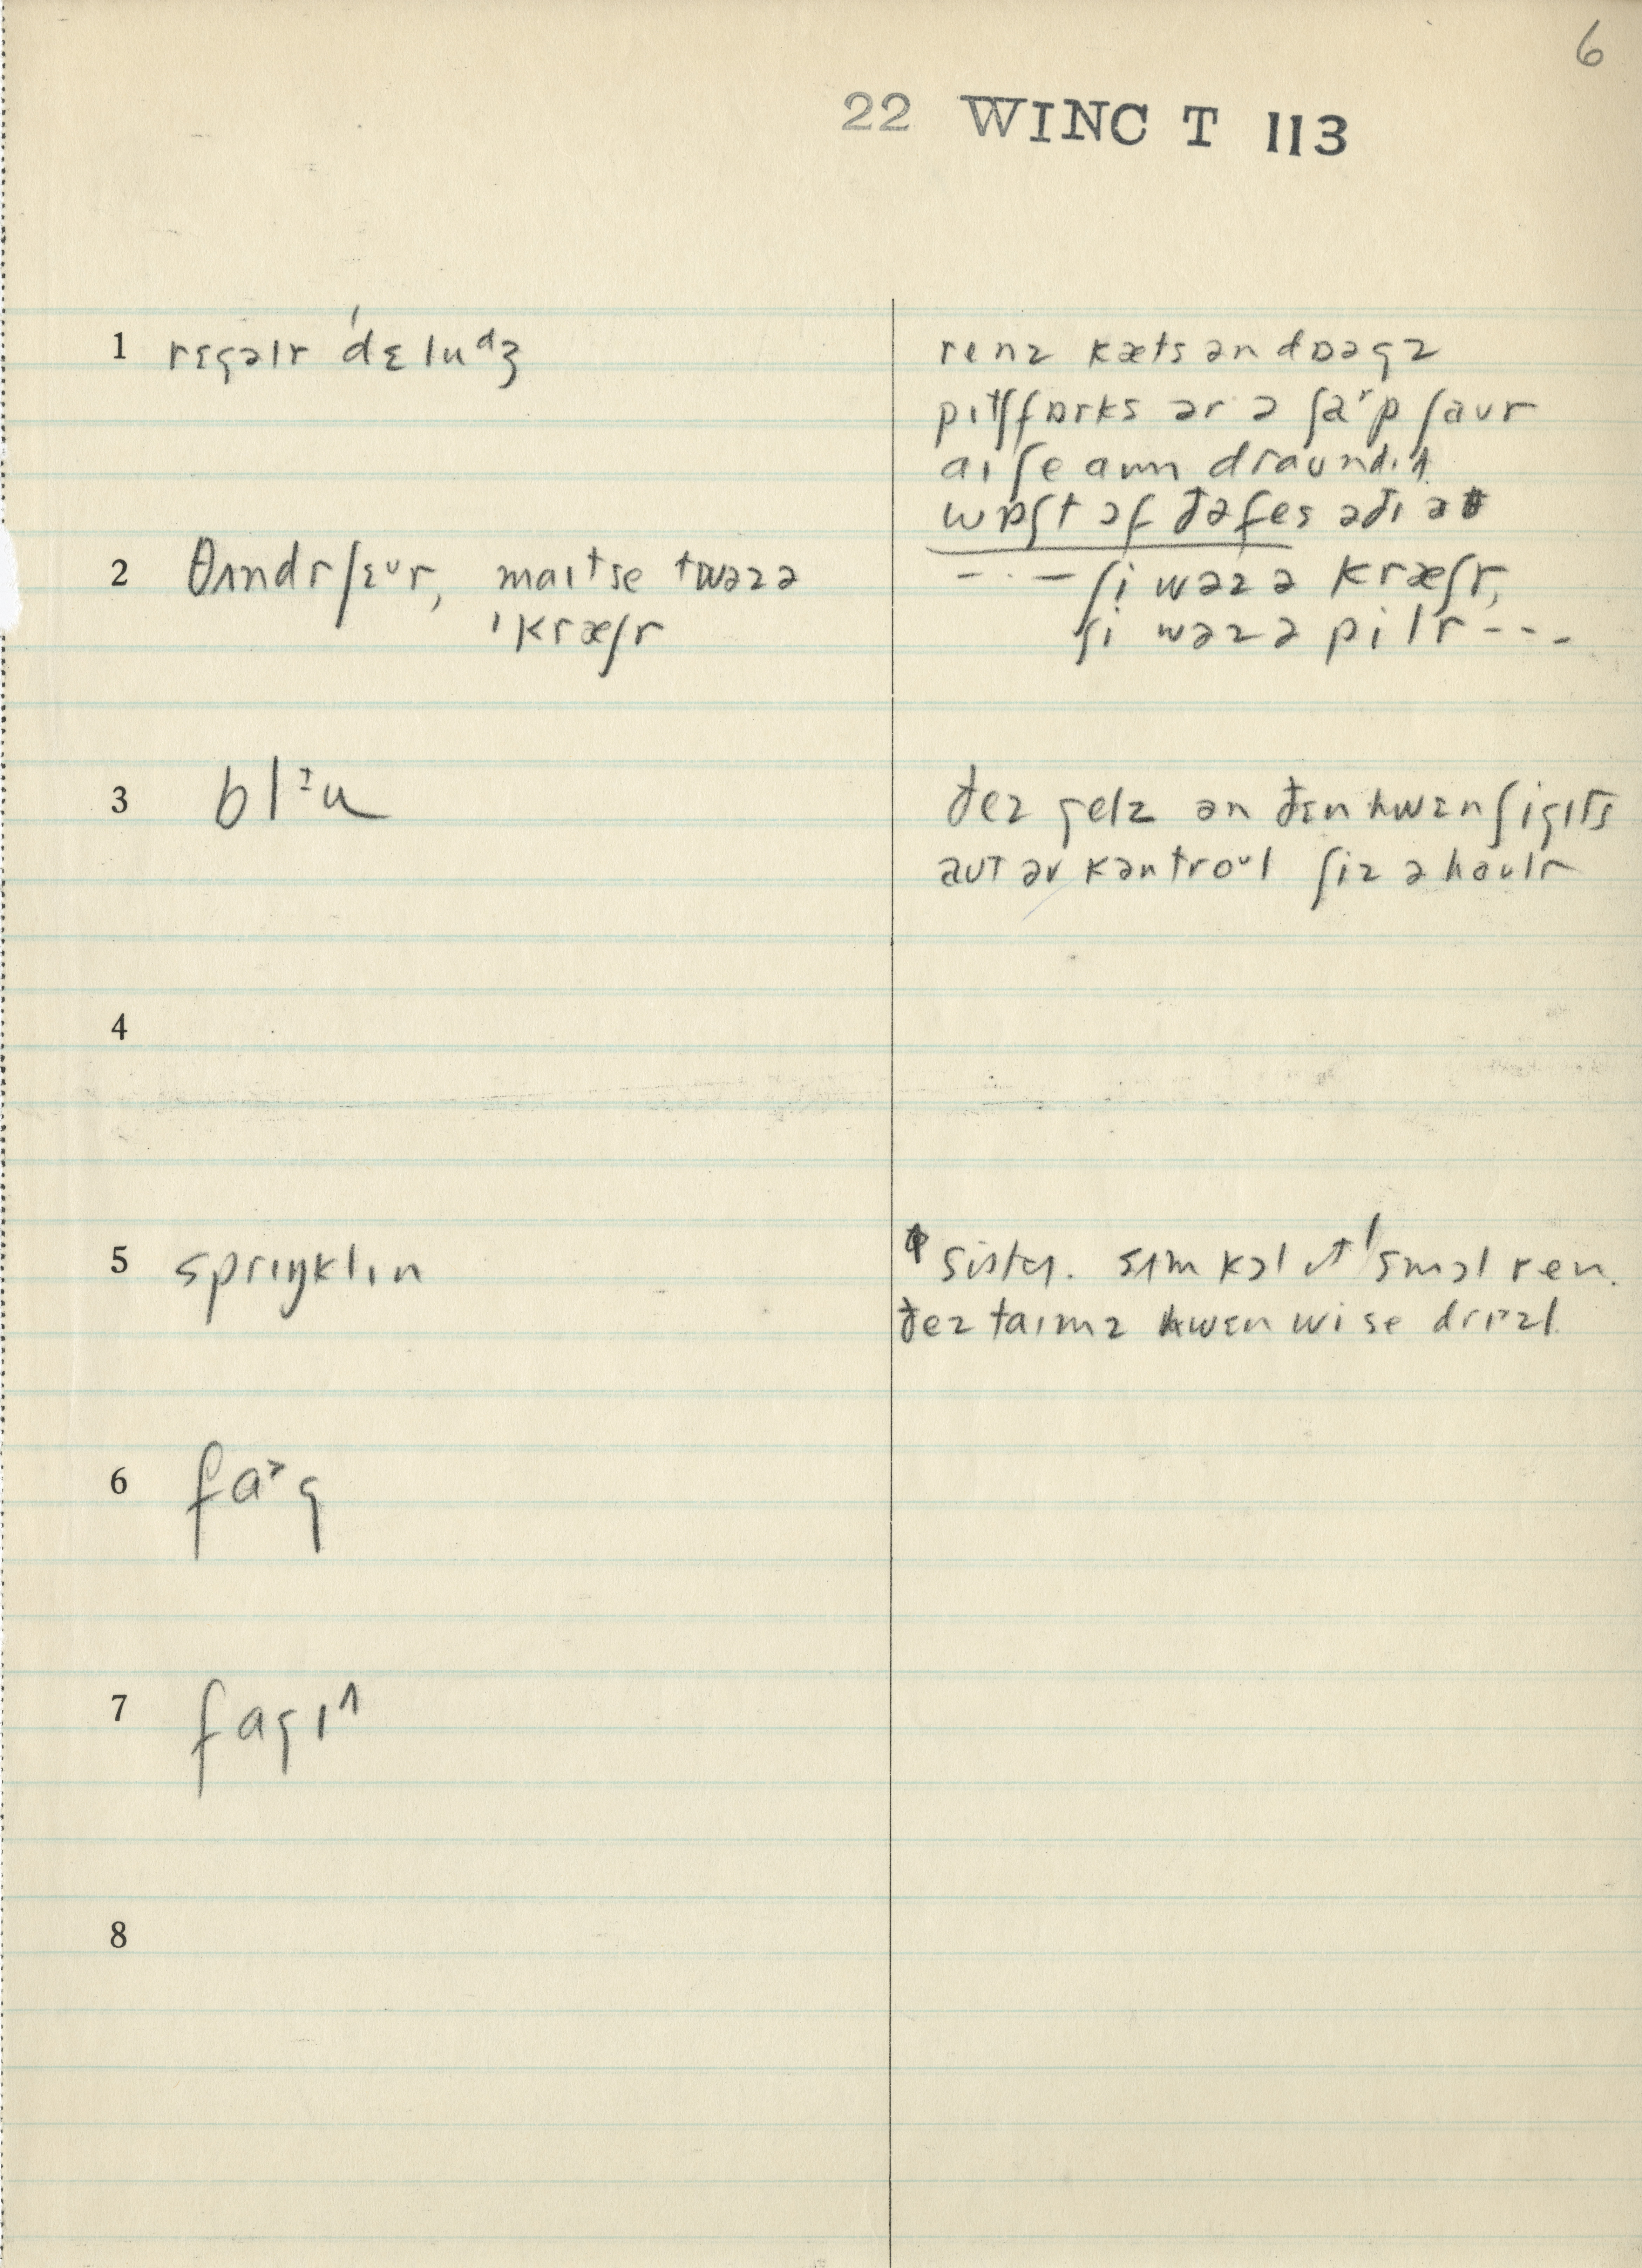 6
22 WINC T 113
1 rɛgəlr ˈdɛluᵈʒ
renz kæts ən dɒəgz
pɪtʃfɒrks ər ə ʃaʳp ʃaʊr
aɪ ʃe aɪm draʊndɪd
wɒʃt əf ðə fes ə ði
2 θʌndrʃɛᵘr, maɪt se twəz ə
ˈkræʃr
- · - ʃi wəz ə kræʃr,
ʃi wəz ə pɪlr - - -
3 blᶾu
ðez gelz ən ðɛn hwɛn ʃi gɪts
aʊt əv kəntroᵘl ʃiz ə haʊlr
4
5 sprɪŋklɪn
sʌm kɔl ɪt ˈsmɔl ren.
ðez taɪmz hwɛn wi se drɪzl.
6 faᵊg
7 fagɪ^
8